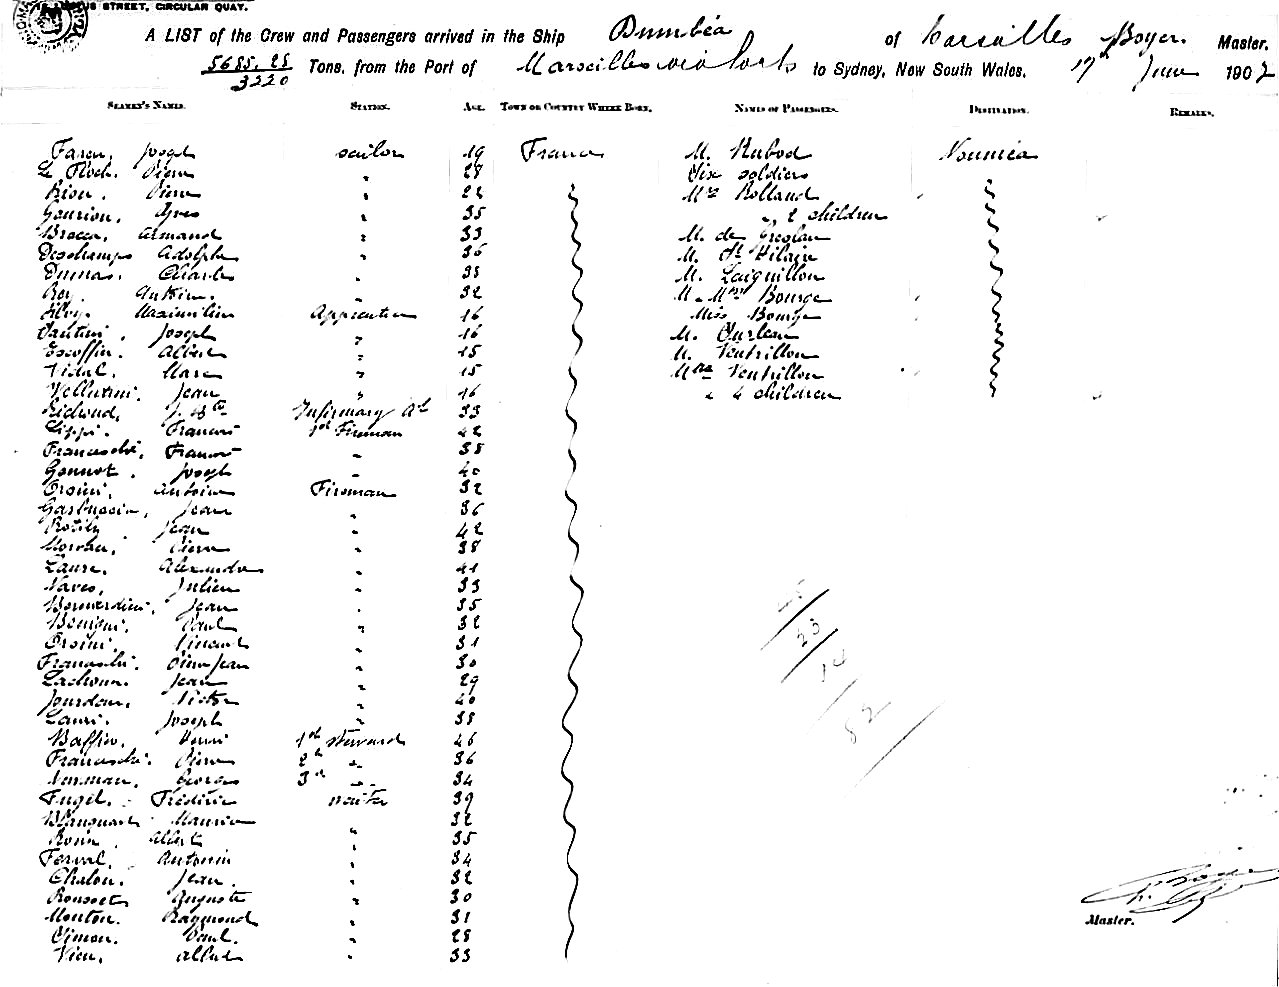 STREET, CIRCULAR QUAY.
A LIST of the Crew and Passengers arrived in the Ship Dumbéa of Marseilles Boyer. Master.
5685.28
3220 Tons, from the Port of Marseilles via Ports to Sydney, New South Wales, 17th June 1907
SEAMEN'S NAMES. STATION. AGE. TOWN OR COUNTRY WHERE BORN. NAMES OF PASSENGERS. DESTINATION. REMARKS.
Joseph sailor 19 France M. Nouméa
Le Floch. Pierre " 28 Six soldiers
Rion. Pierre " 22 Mme Rolland
Gourion. Yves " 35 " 2 children
Armand " 33 M. de Greslan
Deschamps Adolphe " 36 M. St Hilaire
Dumas. Charles " 38 M. Laiguillon
Rey. " 32 M. Mme Bourge
Maximilien Apprentice 16 Miss Bourge
Santini. Joseph " 16 M.
Escoffier. Albert " 15 M. Ventrillon
Vidal. Marc " 15 Mme Ventrillon
Vellutini. Jean " 16 " 4 children
J. Bte Infirmary 33
Lippi. Francois 1st Fireman 42
Franceschi, Francois " 38
Gonnot. Joseph " 40
Orsini, Antoine Fireman 32
Jean " 36
Jean " 42
Moreau, Pierre " 38
Laure. Alexandre " 41
Naves, Julien " 33
Bernardini, Jean " 35
Benigni, Paul " 32
Orsini, Vincent " 31
Franceschi. Pierre Jean " 30
Jean " 29
Jourdan, Victor " 40
Lauri. Joseph " 38
Baffier, Henri 1st steward 46
Franceschi. Pierre 2nd " 36
Norman. Georges 3rd " 34
Fugil. Frédéric waiter 39
Blanquart Maurice " 32
Albert " 35
Antonin " 34
Chalon. Jean. " 32
Rousset Auguste " 30
Mouton. Raymond " 31
Simon. Paul. " 28
Vieu, Albert " 33
45
23
14
82
Master.